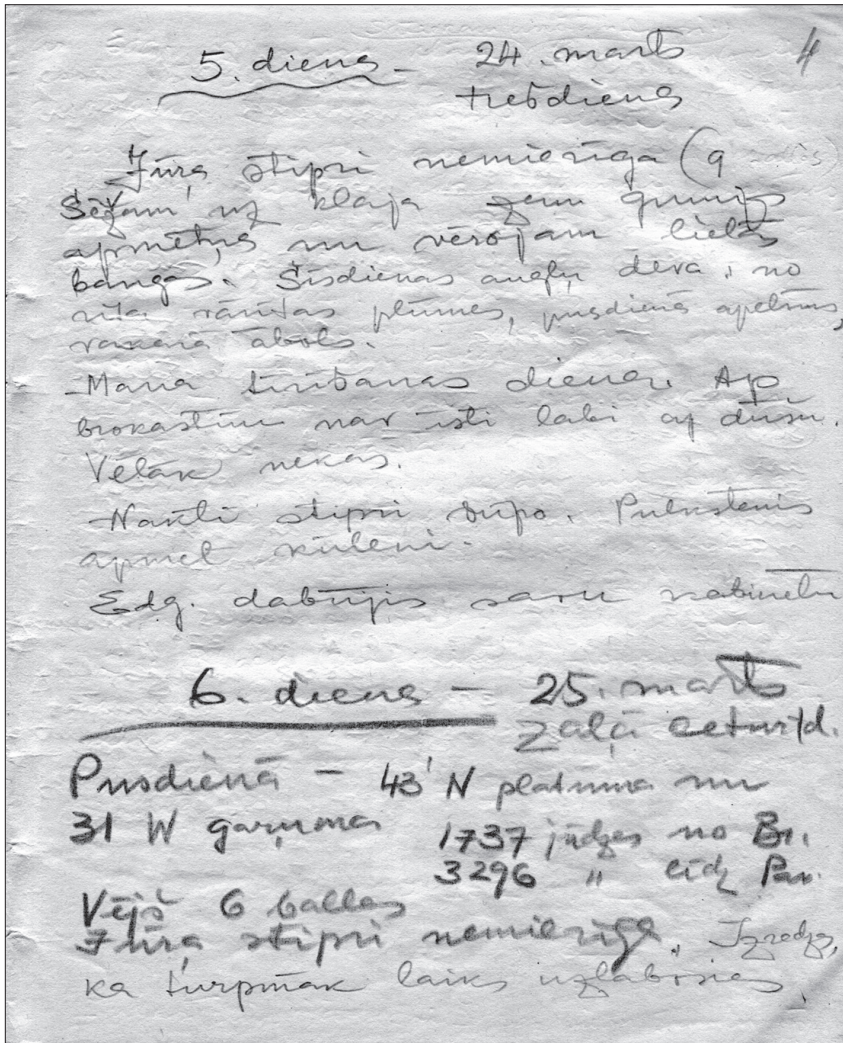 4
5. diena – 24. marts
trešdiena
Jūra stipri nemierīga (9
Sēžam uz klāja zem gumijas
apmetņa un vērojam lielās
bangas. Šīsdienas augļu deva: no
rīta rūgtās plūmes, pusdienā apelsīns,
vakarā ābols.
– Mana tīrīšanas diena. Ap
brokastīm nav īsti labi ap dūšu.
Vēlāk nekas.
– Naktī stipri šūpo. Pulkstenis
apmet kūleni.
Edg. dabūjis savu kabinetu
6. diena – 25. marts
Zaļā ceturtd.
Pusdienā – 43' N platuma un
31 W garuma 1737 jūdzes no Br.
3296 " līdz Pan.
Vējš 6 balles
Jūra stipri nemierīga. Izrādās,
ka turpmāk laiks uzlabosies